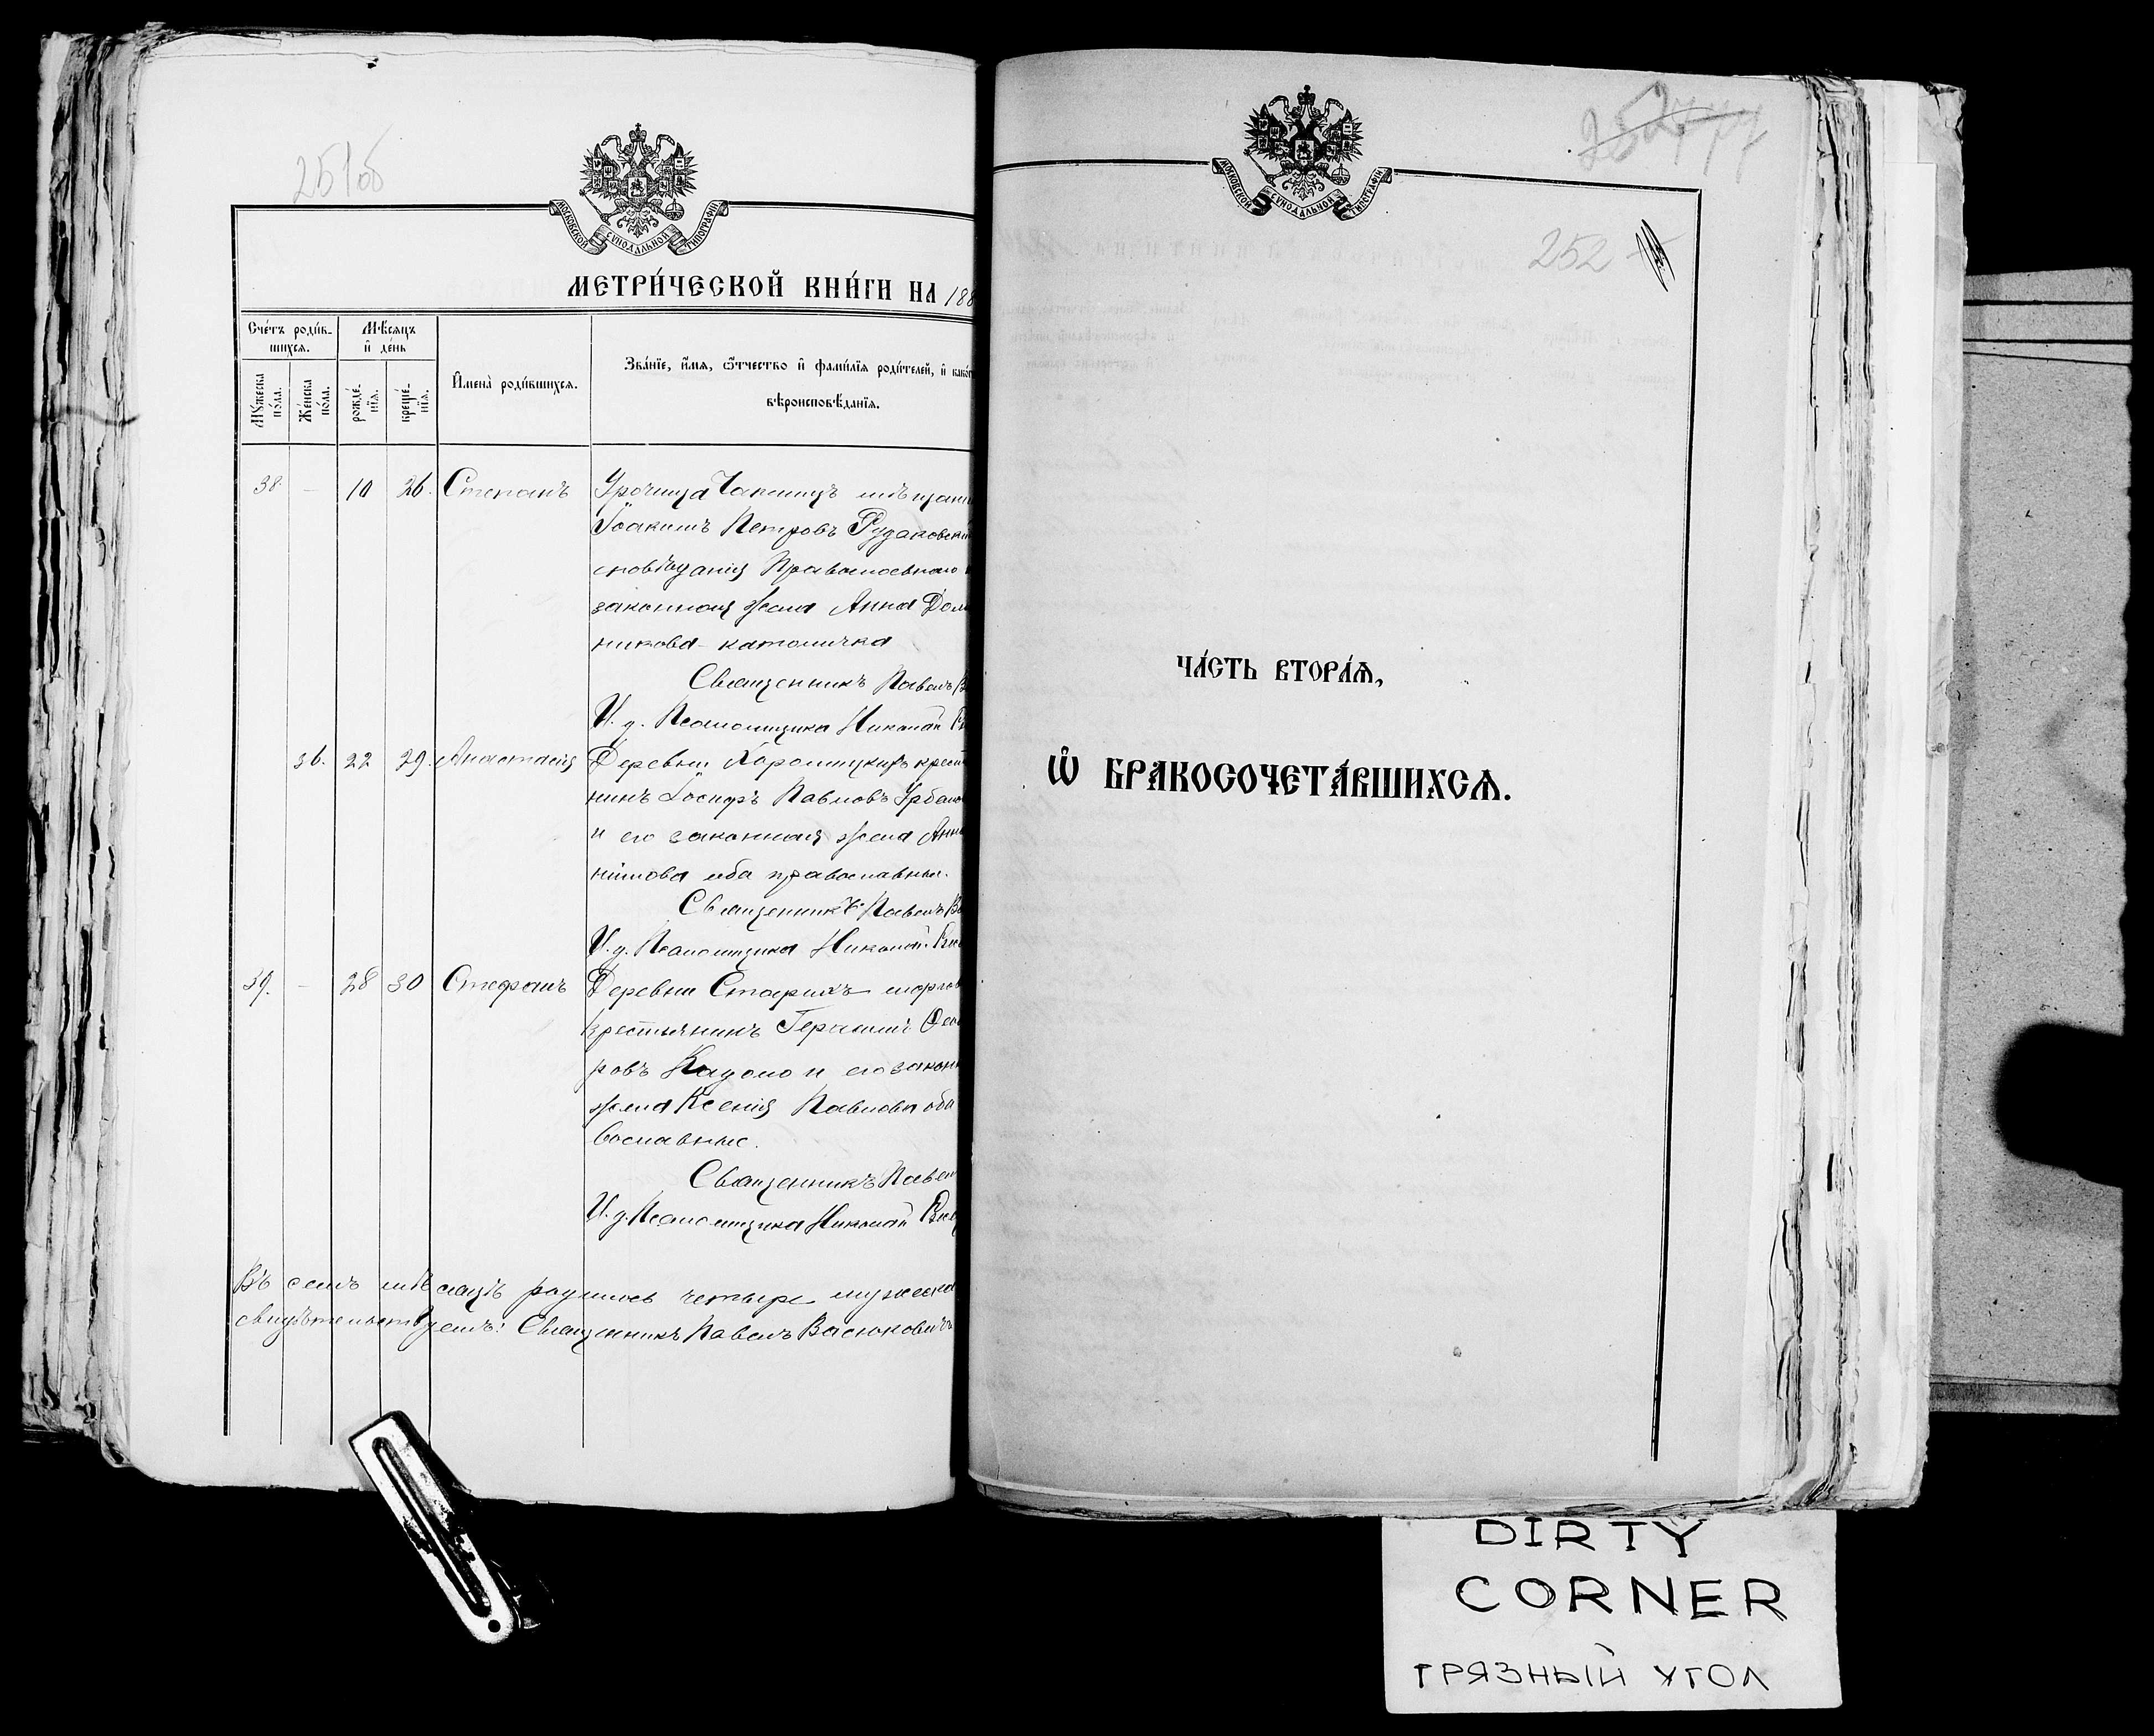 251об
МОСКОВСКОЙ СѴНОДАЛЬНОЙ ТИПОГРАФІИ
МЕТРИ́ЧЕСКОЙ КНИ́ГИ НА 188
Сче́тъ роди́в-
шихся.
Мѣсяцъ
и҆ де́нь
Мꙋжеска
по́ла.
Же́нска
по́ла.
рожде́-
нїѧ.
креще́-
нїѧ.
И҆мена̀ роди́вшихсѧ.
Зва́нїе, и҆́мѧ, ѻ҆́тчество и҆ фами́лїѧ роди́телей, и҆ како́гѡ
вѣроисповѣ́данїѧ.
38. – 10 26. Степанъ Урочища мѣщани
Іоакимъ Петровъ Рудаковскі
сповѣданія Православнаго
законная жена Анна Дом
никова - католичка
Священникъ Павелъ В
И. д. Псаломщика Николай
36. 22 29. Анастасія Деревни крестья
нинъ Іосифъ Павловъ Урбано
и его законная жена Анна
оба православные.
Священникъ Павелъ Ва
И. д. Псаломщика Николай
39. – 28 30 Стефанъ Деревни Старихъ
Крестьянинъ Герасимъ Ѳеодо
ровъ и его законн
жена Ксенія Павлова оба
вославные.
Священникъ Павел
И. д. Псаломщика Николай
Въ семъ мѣсяцѣ родилось четыре мужеска
свидѣтельствуемъ: Священникъ Павелъ Васюковичъ
МОСКОВСКОЙ СѴНОДАЛЬНОЙ ТИПОГРАФІИ
252
ЧА́СТЬ ВТОРА́Ѧ,
Ѡ҆ БРАКОСОЧЕТА́ВШИХСѦ.
DIRTY
CORNER
ГРЯЗНЫЙ УГОЛ